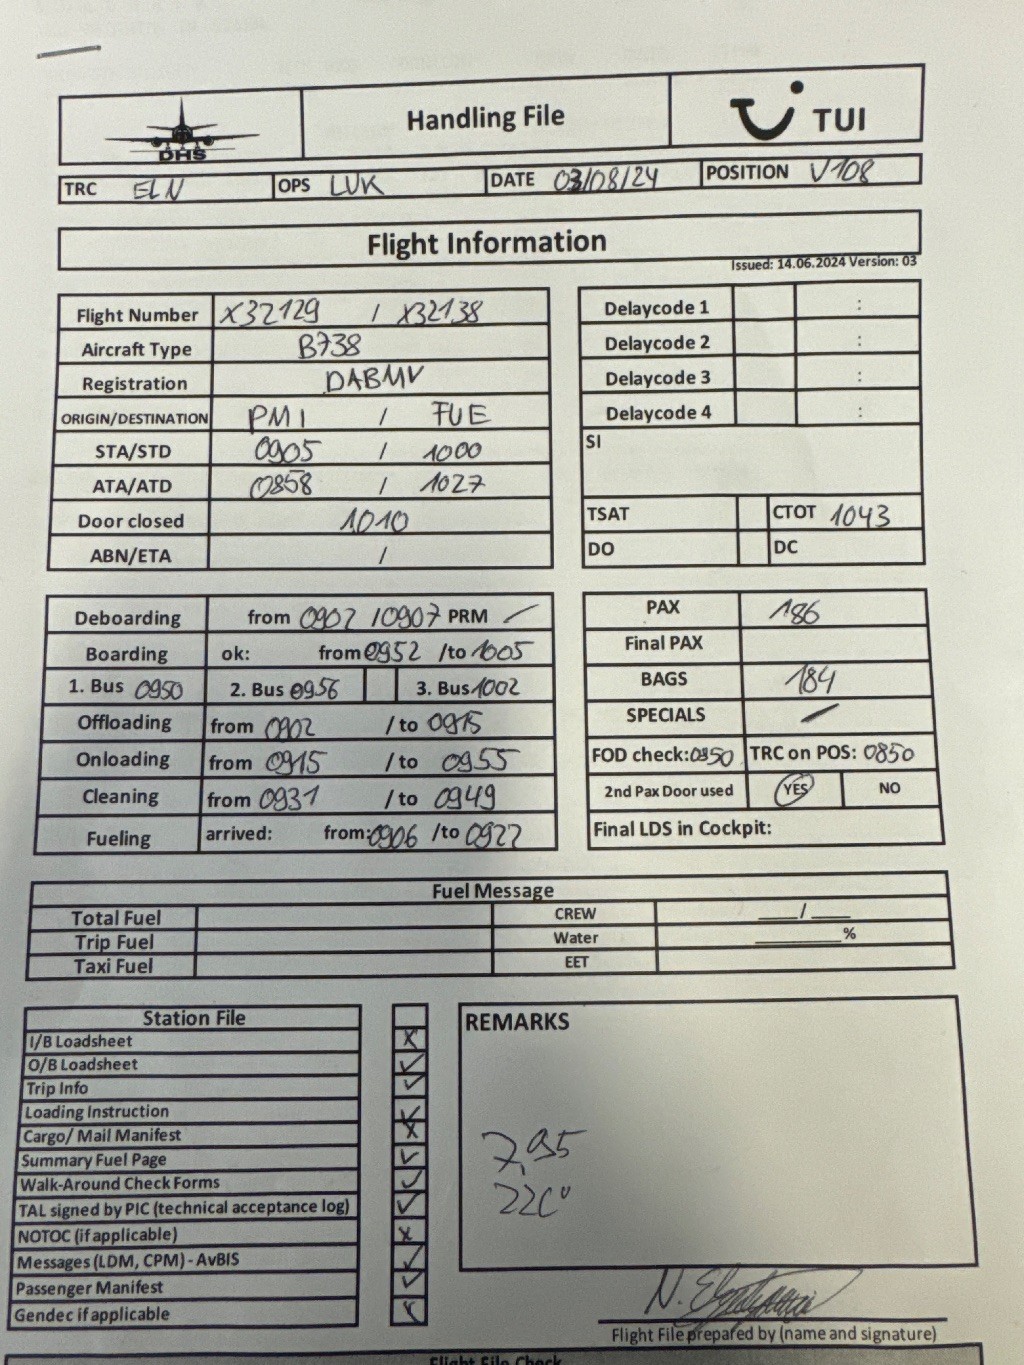 DHS Handling File TUI
TRC ELN OPS LUK DATE 03/08/24 POSITION V108
Flight Information
Issued: 14.06.2024 Version: 03
Flight Number X32129 / X32138
Aircraft Type B738
Registration DABMV
ORIGIN/DESTINATION PMI / FUE
STA/STD 0905 / 1000
ATA/ATD 0858 / 1027
Door closed 1010
ABN/ETA /
Delaycode 1 :
Delaycode 2 :
Delaycode 3 :
Delaycode 4 :
SI
TSAT CTOT 1043
DO DC
Deboarding from 0902 / 0907 PRM
Boarding ok: from 0952 /to 1005
1. Bus 0950 2. Bus 0956 3. Bus 1002
Offloading from 0902 / to 0915
Onloading from 0915 / to 0955
Cleaning from 0931 / to 0949
Fueling arrived: from: 0906 /to 0922
PAX 186
Final PAX
BAGS 184
SPECIALS
FOD check: 0850 TRC on POS: 0850
2nd Pax Door used YES NO
Final LDS in Cockpit:
Fuel Message
Total Fuel CREW ___/___
Trip Fuel Water ________%
Taxi Fuel EET
Station File
I/B Loadsheet
O/B Loadsheet
Trip Info
Loading Instruction
Cargo/ Mail Manifest
Summary Fuel Page
Walk-Around Check Forms
TAL signed by PIC (technical acceptance log)
NOTOC (if applicable)
Messages (LDM, CPM) - AvBIS
Passenger Manifest
Gendec if applicable
REMARKS
7,95
N.
Flight File prepared by (name and signature)
Flight File Check